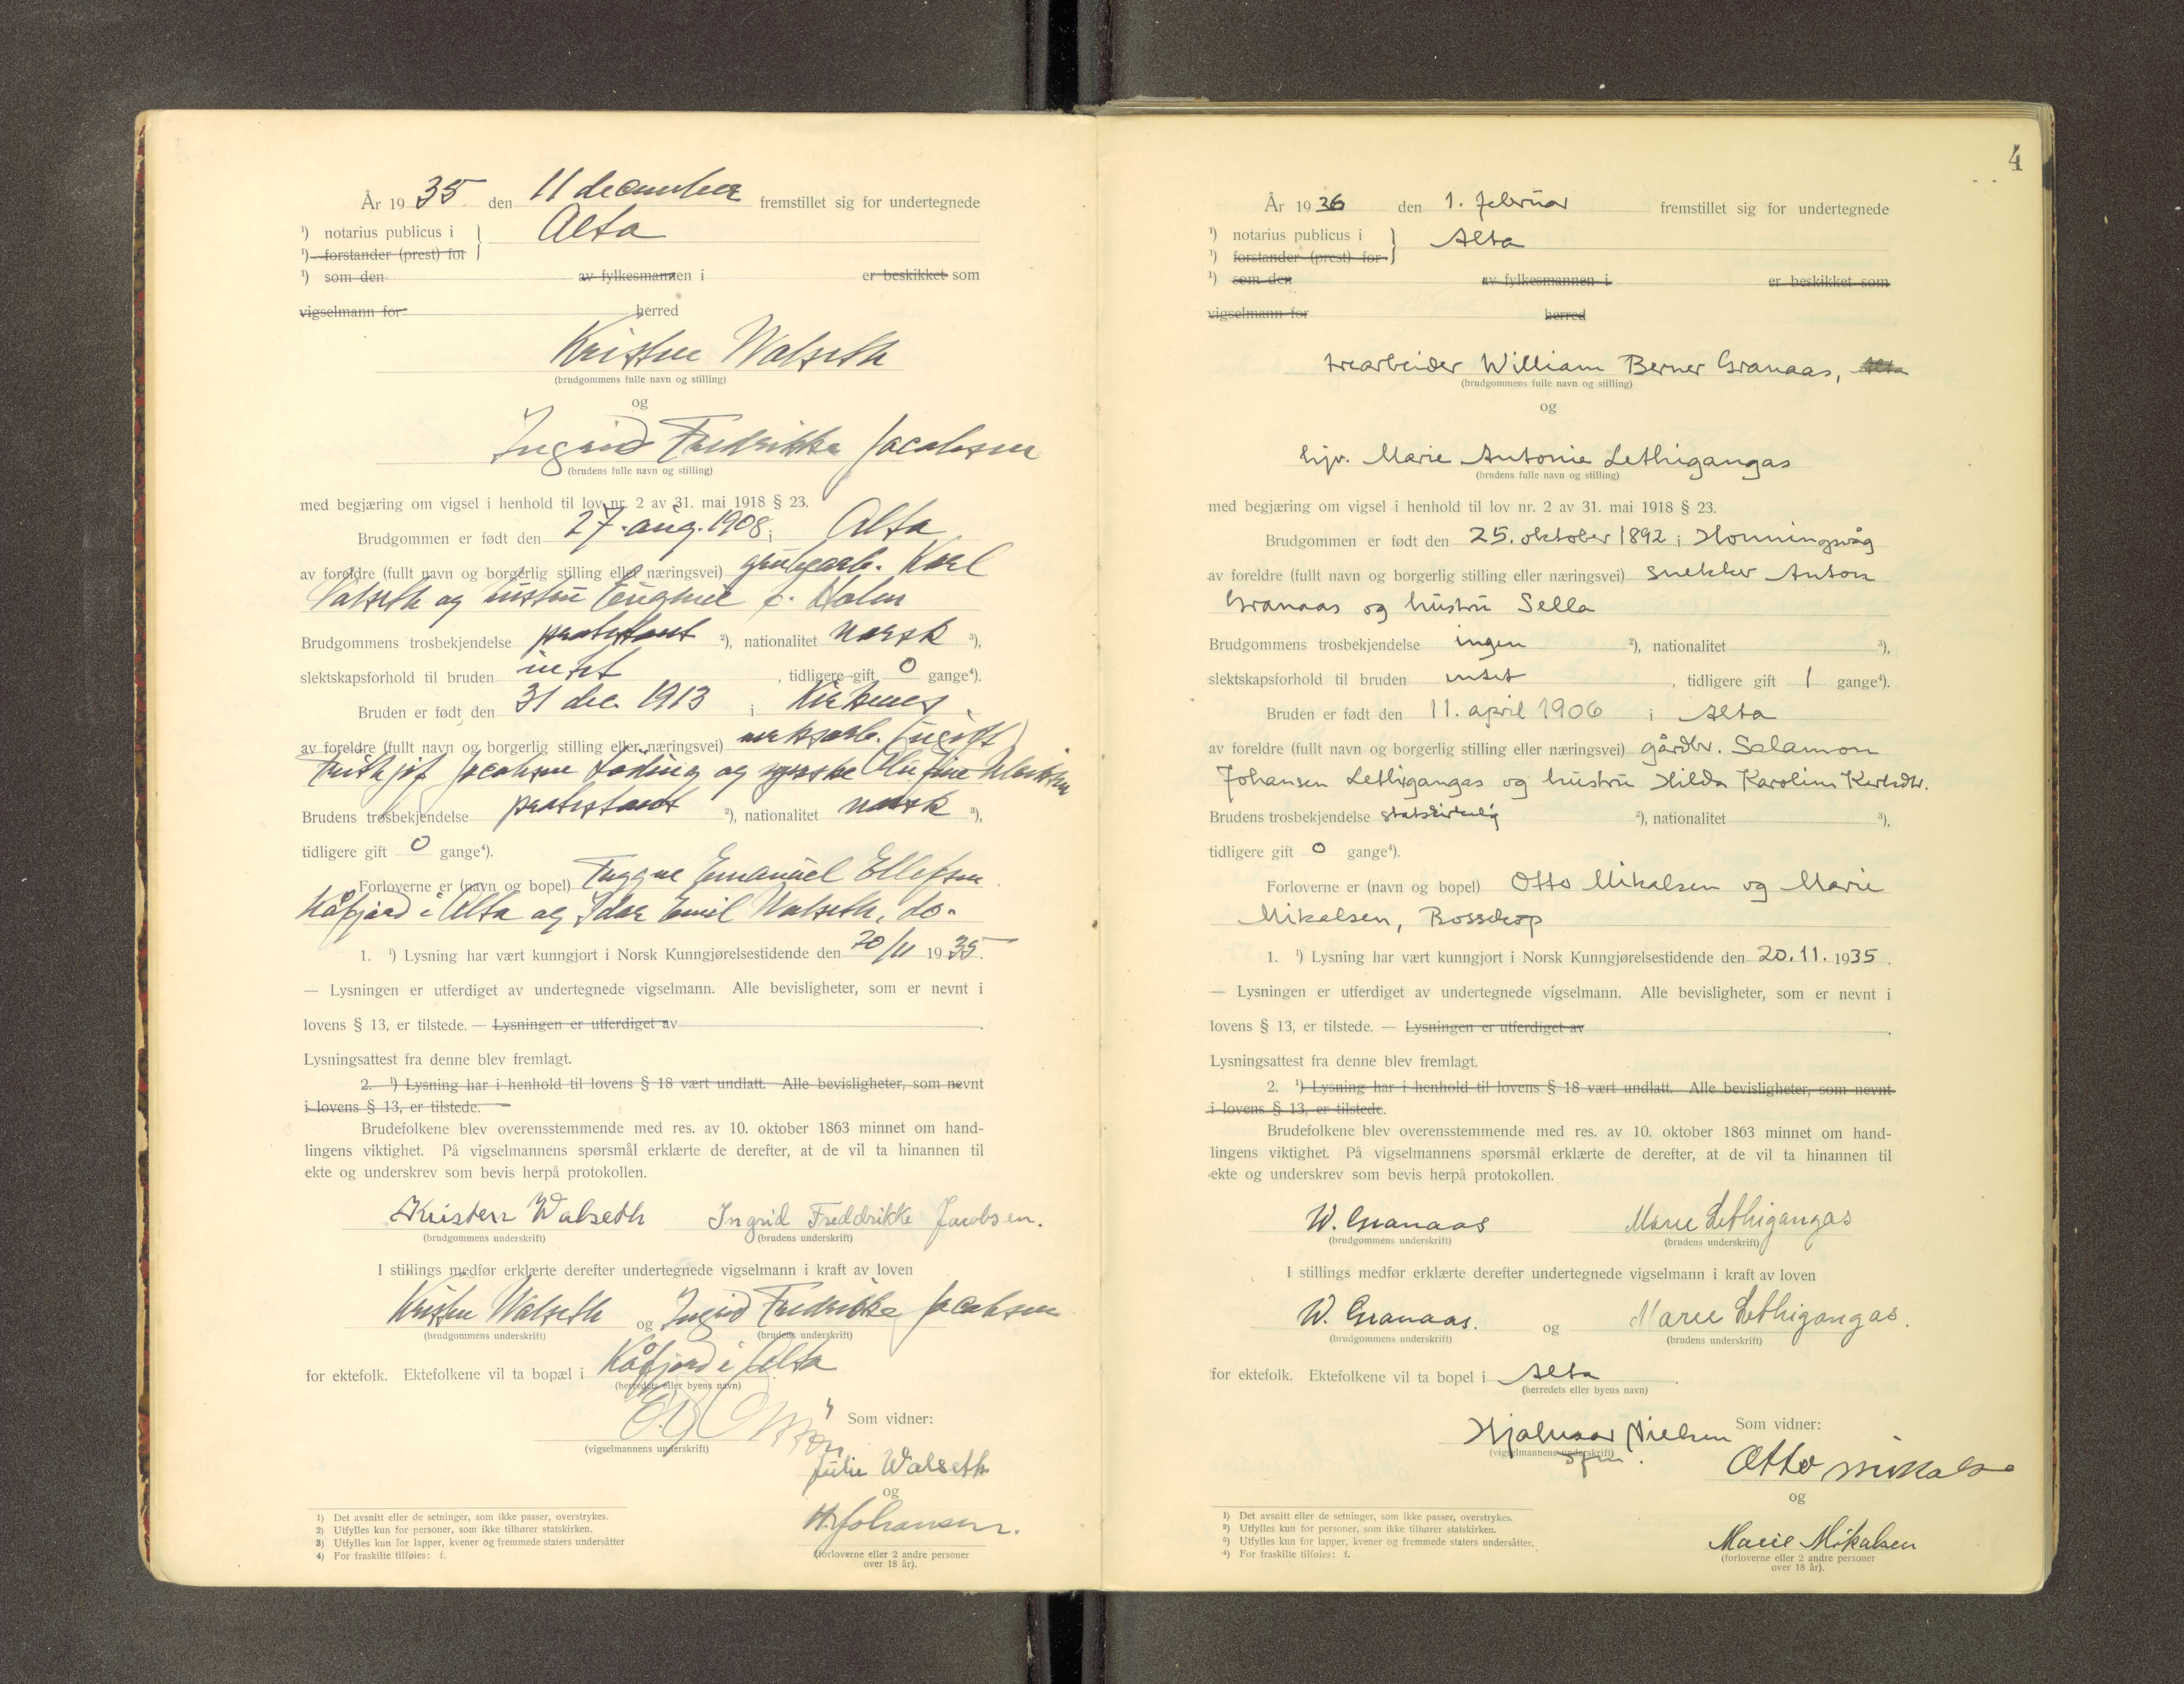 År 1935 den 11 december fremstillet sig for undertegnede
¹) notarius publicus i } Alta
¹) forstander (prest) for
¹) som den av fylkesmannen i er beskikket som
vigselmann for herred
Kristen Walseth
(brudgommens fulle navn og stilling)
og
Ingrid Fredrikke Jacobsen
(brudens fulle navn og stilling)
med begjæring om vigsel i henhold til lov nr. 2 av 31. mai 1918 § 23.
Brudgommen er født den 27. aug. 1908 i Alta
av foreldre (fullt navn og borgerlig stilling eller næringsvei) grubearb. Karl
Valseth og hustru f. Holm
Brudgommens trosbekjendelse protestant ²), nationalitet norsk ³),
slektskapsforhold til bruden intet, tidligere gift 0 gange⁴).
Bruden er født den 31 dec. 1913 i Kirkenes
av foreldre (fullt navn og borgerlig stilling eller næringsvei) verksarb. (ugift)
Frithjof Jacobsen og
Brudens trosbekjendelse protestant ²), nationalitet norsk ³),
tidligere gift 0 gange⁴).
Forloverne er (navn og bopel) Trygve Emanuel Ellefsen
Kåfjord i Alta og Idar Emil Walseth, do.
1. ¹) Lysning har vært kunngjort i Norsk Kunngjørelsestidende den 20/11 1935.
— Lysningen er utferdiget av undertegnede vigselmann. Alle bevisligheter, som er nevnt i
lovens § 13, er tilstede. — Lysningen er utferdiget av .
Lysningsattest fra denne blev fremlagt.
2. ¹) Lysning har i henhold til lovens § 18 vært undlatt. Alle bevisligheter, som nevnt
i lovens § 13, er tilstede.
Brudefolkene blev overensstemmende med res. av 10. oktober 1863 minnet om hand-
lingens viktighet. På vigselmannens spørsmål erklærte de derefter, at de vil ta hinannen til
ekte og underskrev som bevis herpå protokollen.
Kristen Walseth Ingrid Freddrikke Jacobsen.
(brudgommens underskrift) (brudens underskrift)
I stillings medfør erklærte derefter undertegnede vigselmann i kraft av loven
Kristen Walseth og Ingrid Fredrikke Jacobsen
(brudgommens underskrift) (brudens underskrift)
for ektefolk. Ektefolkene vil ta bopæl i Kåfjord i Alta
(herredets eller byens navn)
Som vidner:
(vigselmannens underskrift)
Julie Walseth
og
H. Johansen.
(forloverne eller 2 andre personer
over 18 år).
1) Det avsnitt eller de setninger, som ikke passer, overstrykes.
2) Utfylles kun for personer, som ikke tilhører statskirken.
3) Utfylles kun for lapper, kvener og fremmede staters undersåtter
4) For fraskilte tilføies: f.
4
År 1936 den 1. februar fremstillet sig for undertegnede
¹) notarius publicus i } Alta
¹) forstander (prest) for
¹) som den av fylkesmannen i er beskikket som
vigselmann for herred
trearbeider William Berner Granaas, Alta
(brudgommens fulle navn og stilling)
og
hjv. Marie Antonie Lethigangas
(brudens fulle navn og stilling)
med begjæring om vigsel i henhold til lov nr. 2 av 31. mai 1918 § 23.
Brudgommen er født den 25. oktober 1892 i Honningsvåg
av foreldre (fullt navn og borgerlig stilling eller næringsvei) snekker Anton
Granaas og hustru Sella
Brudgommens trosbekjendelse ingen ²), nationalitet ³),
slektskapsforhold til bruden intet, tidligere gift 1 gange⁴).
Bruden er født den 11. april 1906 i Alta
av foreldre (fullt navn og borgerlig stilling eller næringsvei) gårdbr. Salamon
Johansen Lethigangas og hustru Hilda Karolina
Brudens trosbekjendelse statskirkelig ²), nationalitet ³),
tidligere gift 0 gange⁴).
Forloverne er (navn og bopel) Otto Mikalsen og Marie
Mikalsen, Bossekop
1. ¹) Lysning har vært kunngjort i Norsk Kunngjørelsestidende den 20.11.1935.
— Lysningen er utferdiget av undertegnede vigselmann. Alle bevisligheter, som er nevnt i
lovens § 13, er tilstede. — Lysningen er utferdiget av .
Lysningsattest fra denne blev fremlagt.
2. ¹) Lysning har i henhold til lovens § 18 vært undlatt. Alle bevisligheter, som nevnt
i lovens § 13, er tilstede.
Brudefolkene blev overensstemmende med res. av 10. oktober 1863 minnet om hand-
lingens viktighet. På vigselmannens spørsmål erklærte de derefter, at de vil ta hinannen til
ekte og underskrev som bevis herpå protokollen.
W. Granaas Marie Lethigangas
(brudgommens underskrift) (brudens underskrift)
I stillings medfør erklærte derefter undertegnede vigselmann i kraft av loven
W. Granaas. og Marie Lethigangas.
(brudgommens underskrift) (brudens underskrift)
for ektefolk. Ektefolkene vil ta bopel i Alta.
(herredets eller byens navn)
Hjalmar Nielsen Som vidner:
(vigselmannens underskrift)
Otto Mikals
og
Marie Mikalsen
(forloverne eller 2 andre personer
over 18 år).
1) Det avsnitt eller de setninger, som ikke passer, overstrykes.
2) Utfylles kun for personer, som ikke tilhører statskirken.
3) Utfylles kun for lapper, kvener og fremmede staters undersåtter.
4) For fraskilte tilføies: f.